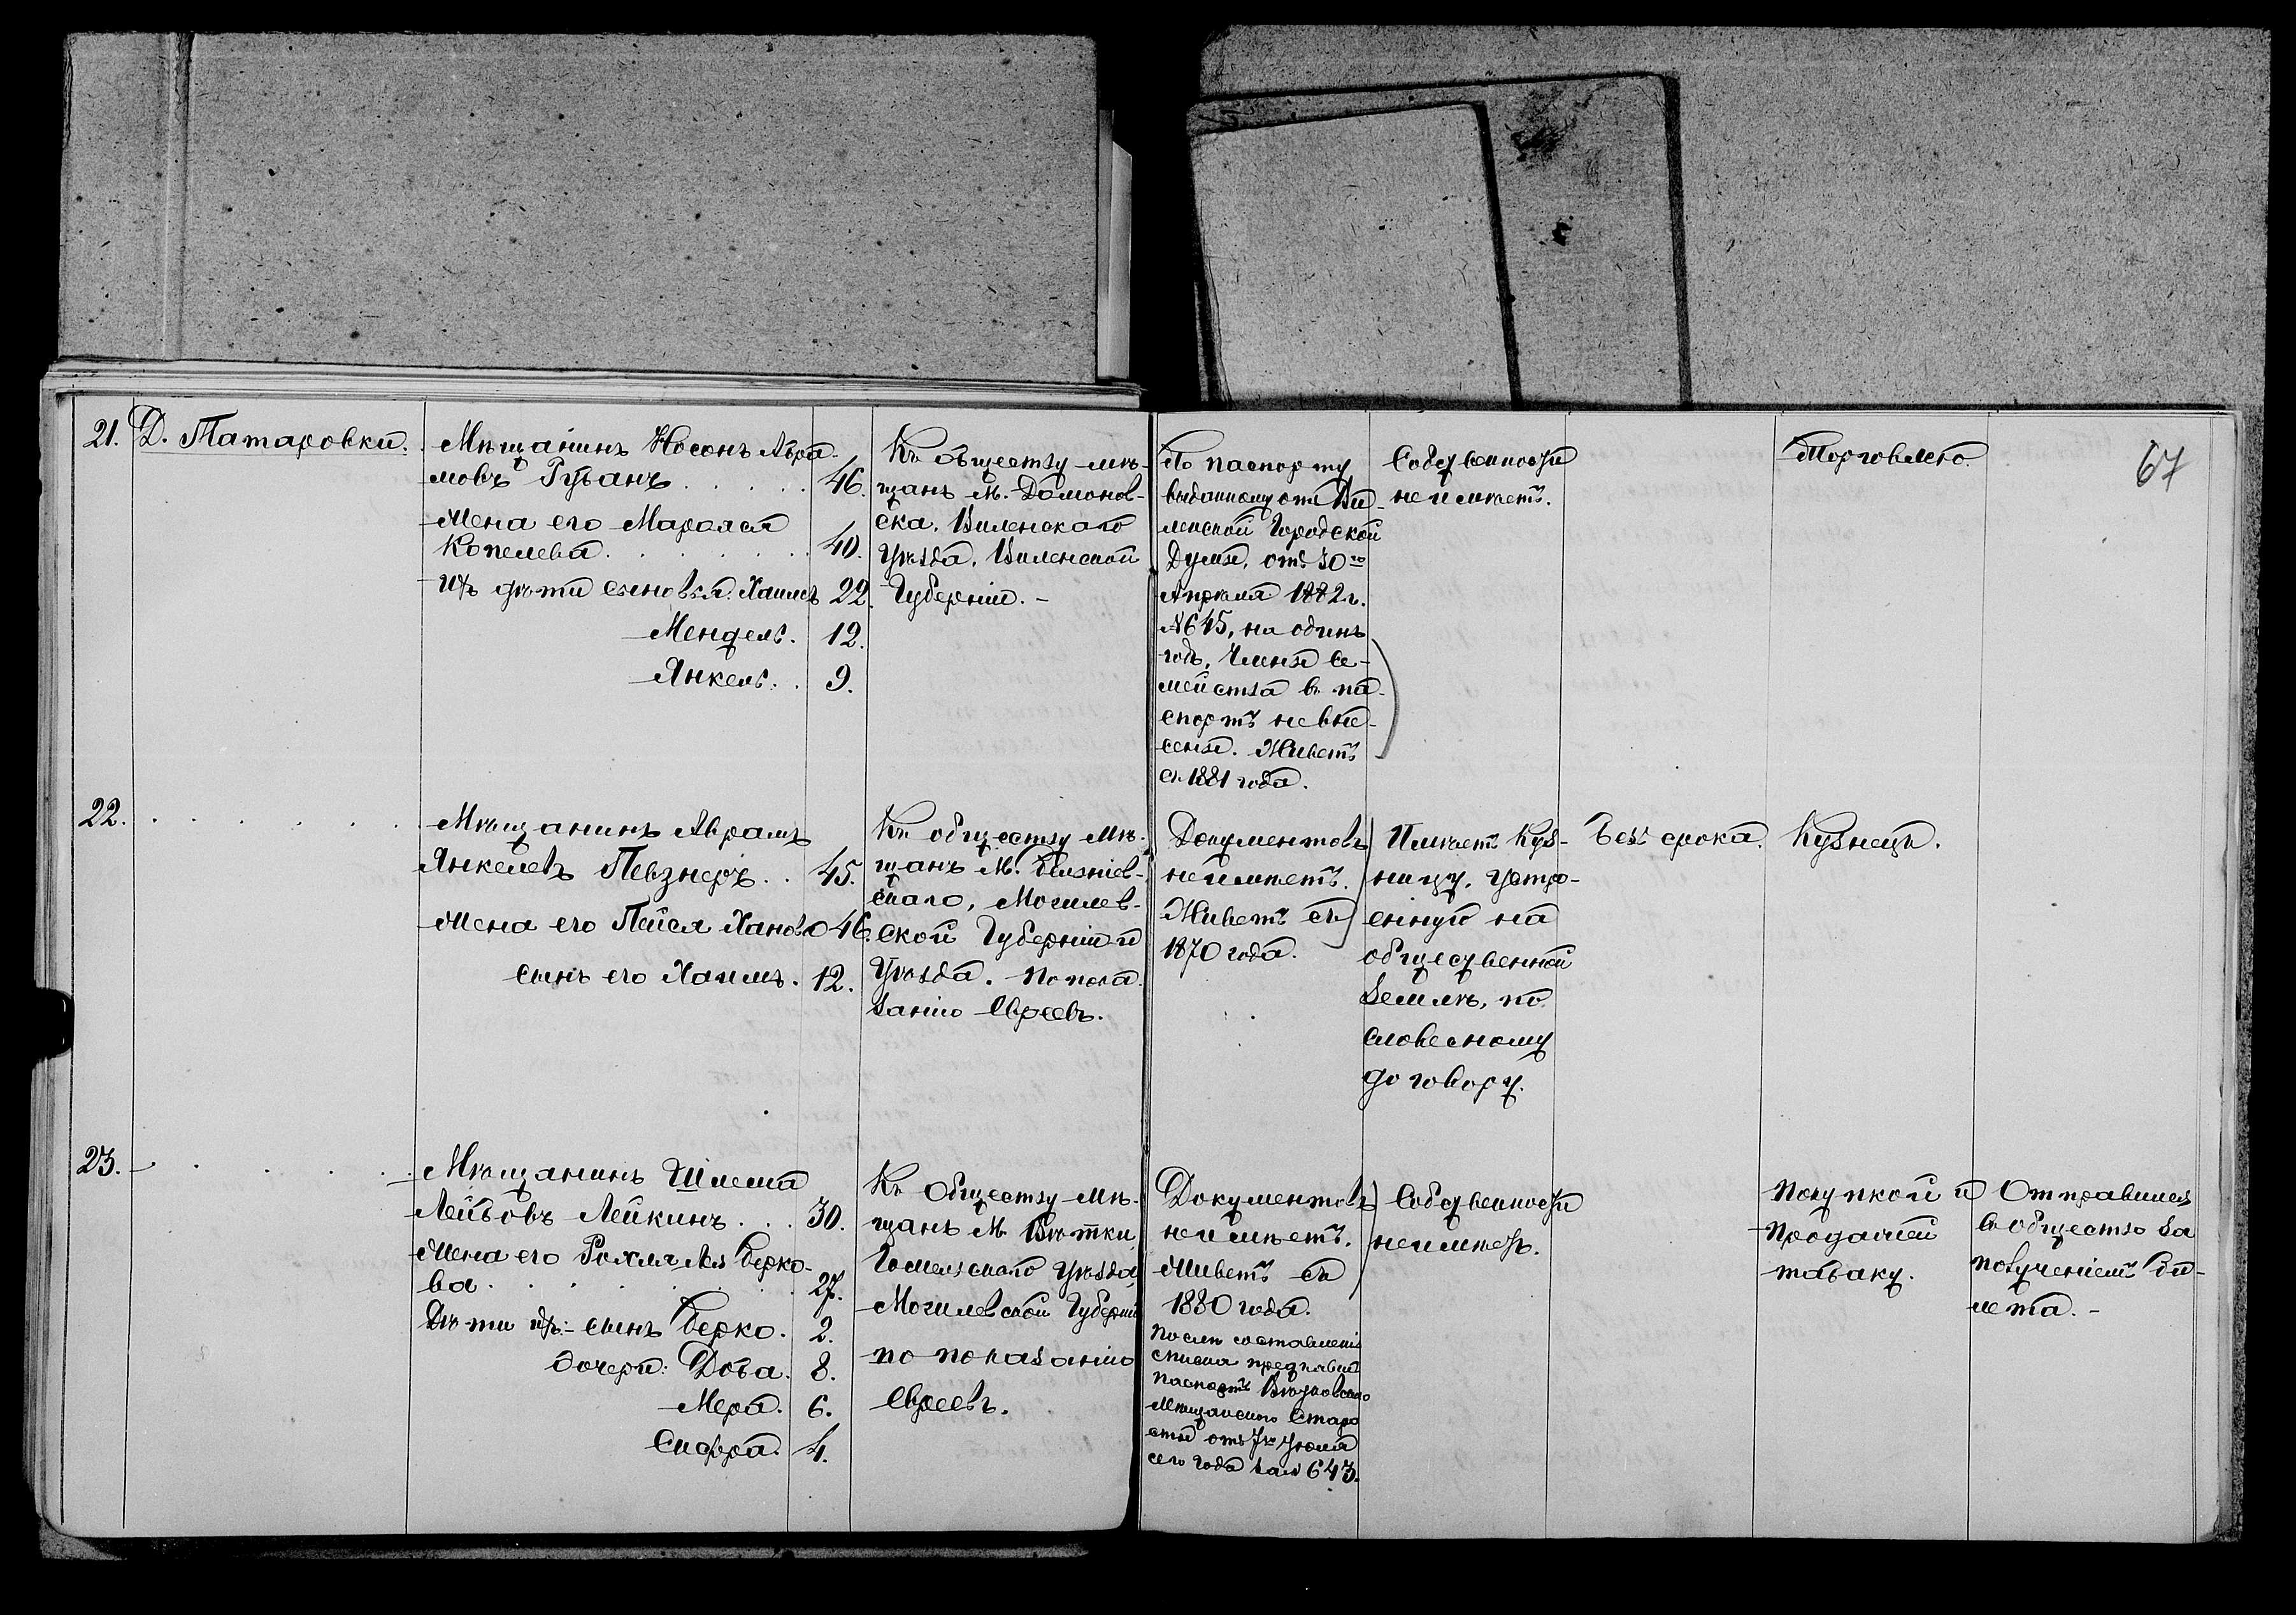 21. Д. Татаровки.
Мѣщанинъ Носонъ Абра-
мовъ Рубанъ . . . . . 46.
Жена его Марьяся
Копелева . . . . . . 40.
Ихъ дѣти сыновья: Хаимъ 22.
Мендель. 12.
Янкель. . 9.
Къ обществу мѣ-
щанъ М.
Виленскаго
Уѣзда, Виленской
Губерніи. –
По паспорту
выданному отъ Ви-
ленской Городской
Думы, отъ 30го
Апрѣля 1882 г.
№ 645, на одинъ
годъ, Члены се-
мейства въ па-
спортъ не вне-
сены. Живетъ
съ 1881 года.
Собственности
не имѣетъ.
Торговлею.
67
22. . . . . . .
Мѣщанинъ Абрамъ
Янкелевъ Певзнеръ . . 45.
Жена его Пейся Ханова 46.
сынъ его Хаимъ. 12.
Къ обществу мѣ-
щанъ М.
Могилев-
ской Губерніи и
Уѣзда. По пока-
занію Евреевъ.
Документовъ
не имѣетъ.
Живетъ съ
1870 года.
Имѣетъ куз-
ницу, устро-
енную на
общественной
землѣ, по
словесному
договору.
Безъ срока.
Кузнецъ.
23. . . . . .
Мѣщанинъ Шлема
Лейбовъ Лейкинъ . . . 30.
Жена его Рохля Лея Берко-
ва . . . . . . . 27.
Дѣти ихъ:- сынъ Берко. 2.
дочери: Доба. 8.
Мера. 6.
Сифра. 4.
Къ Обществу мѣ-
щанъ М. Вѣтки,
Гомельскаго Уѣзда,
Могилевской Губерніи
по показанію
Евреевъ.
Документовъ
не имѣетъ.
Живетъ съ
1880 года.
Послѣ составленія
списка предъявилъ
паспортъ Вѣтковскаго
Мѣщанскаго Старо
сты отъ 7го Іюля
сего года за № 643.
Собственности
не имѣетъ.
Покупкой и
продажей
табаку.
Отправился
въ общество за
полученіемъ би-
лета. –